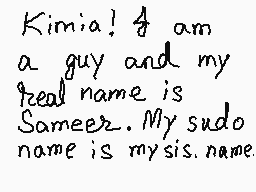 Kimia! I am
a guy and my
real name is
Sameer. My sudo
name is my sis. name.